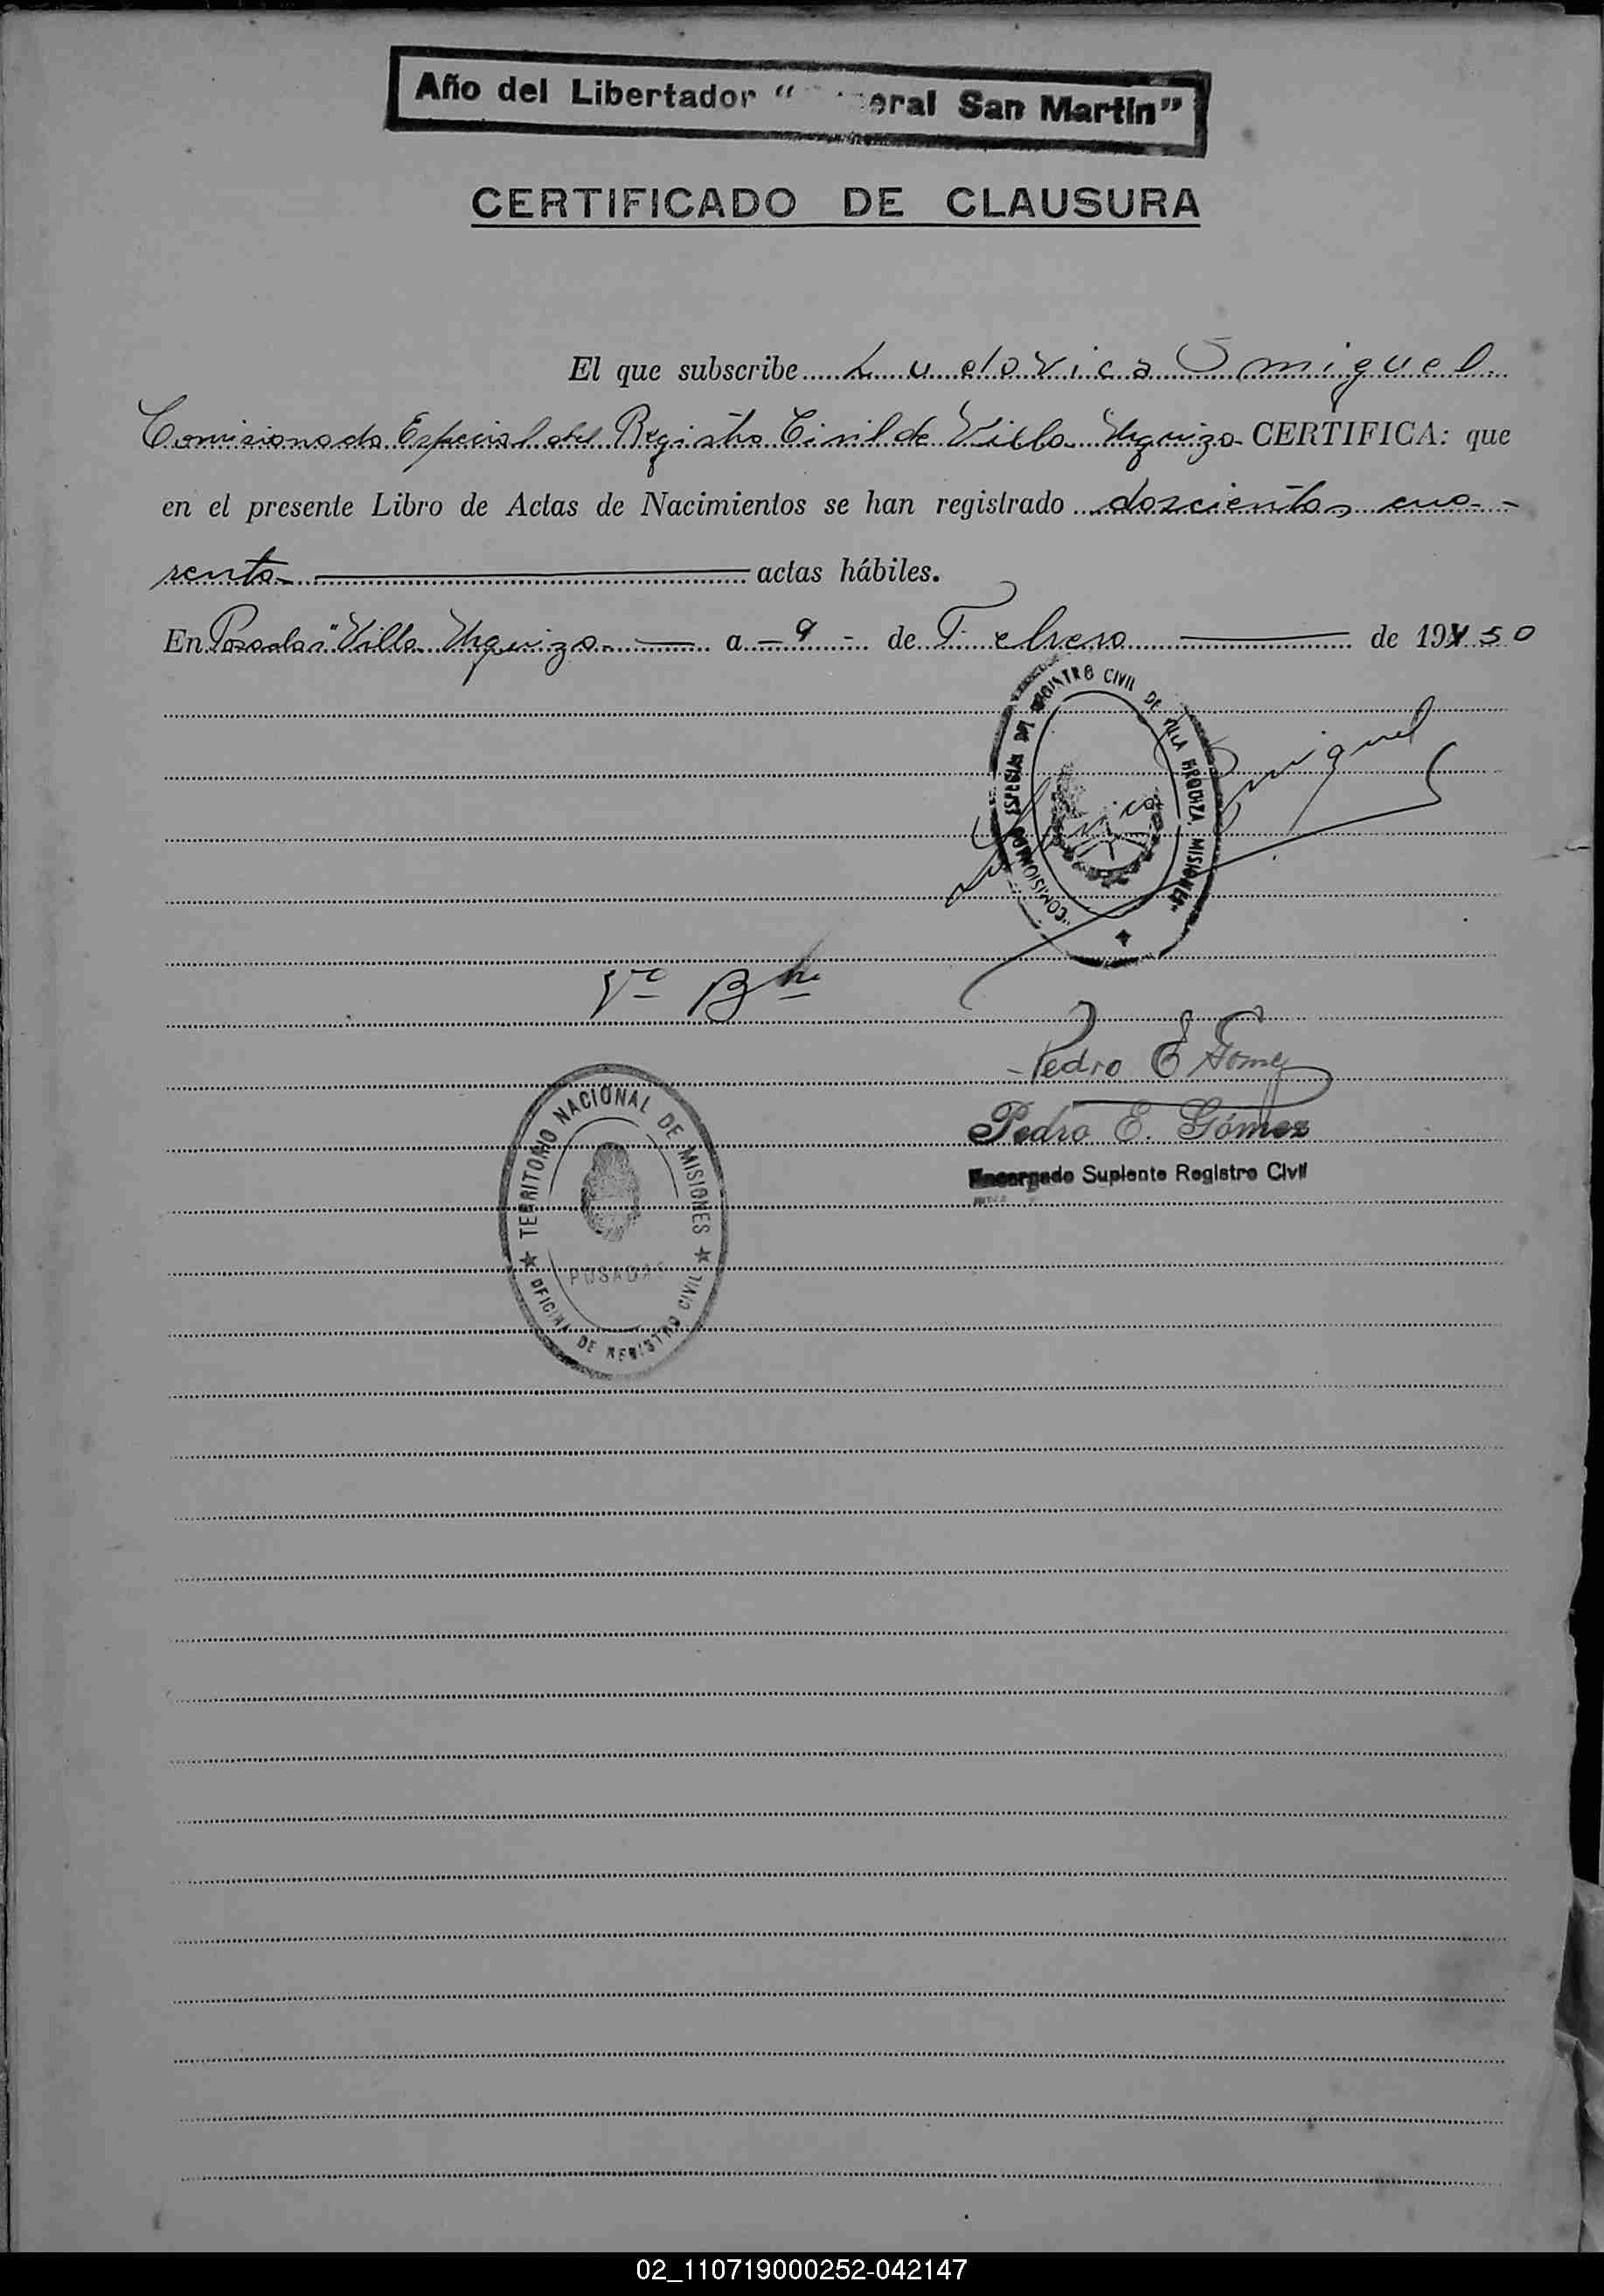 Año del Libertador " eral San Martin"
CERTIFICADO DE CLAUSURA
El que subscribe Ludovica Smiguel
Comisionada Especial del Registro Civil de Villa Urquiza CERTIFICA: que
en el presente Libro de Actas de Nacimientos se han registrado doscientos cua-
renta actas hábiles.
En Posadas "Villa Urquiza a - 9 - de Febrero de 1950
"COMISIONADO ESPECIAL DEL REGISTRO CIVIL DE VILLA URQUIZA, MISIONES"
Ludovica Smiguel
Vº Bno
Pedro E Gomez
Pedro E. Gómez
Encargado Suplente Registro Civil
TERRITORIO NACIONAL DE MISIONES
POSADAS
OFICINA DE REGISTRO CIVIL
02_110719000252-042147